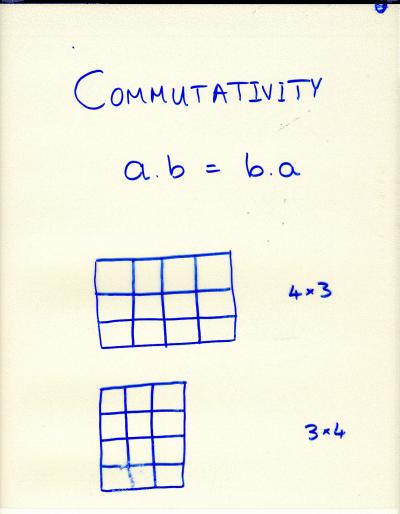 COMMUTATIVITY
a.b = b.a
4×3
3×4